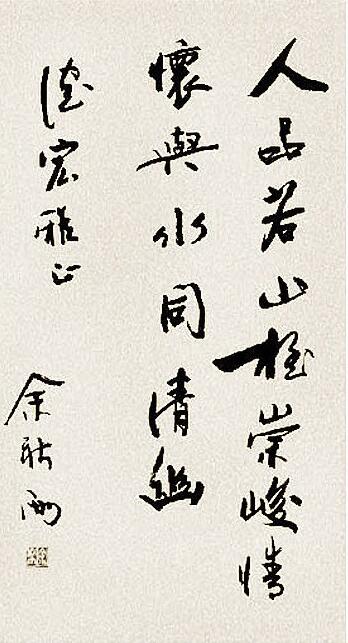 人品若山極崇峻情
懷與水同清幽
德宏雅正
余秋雨